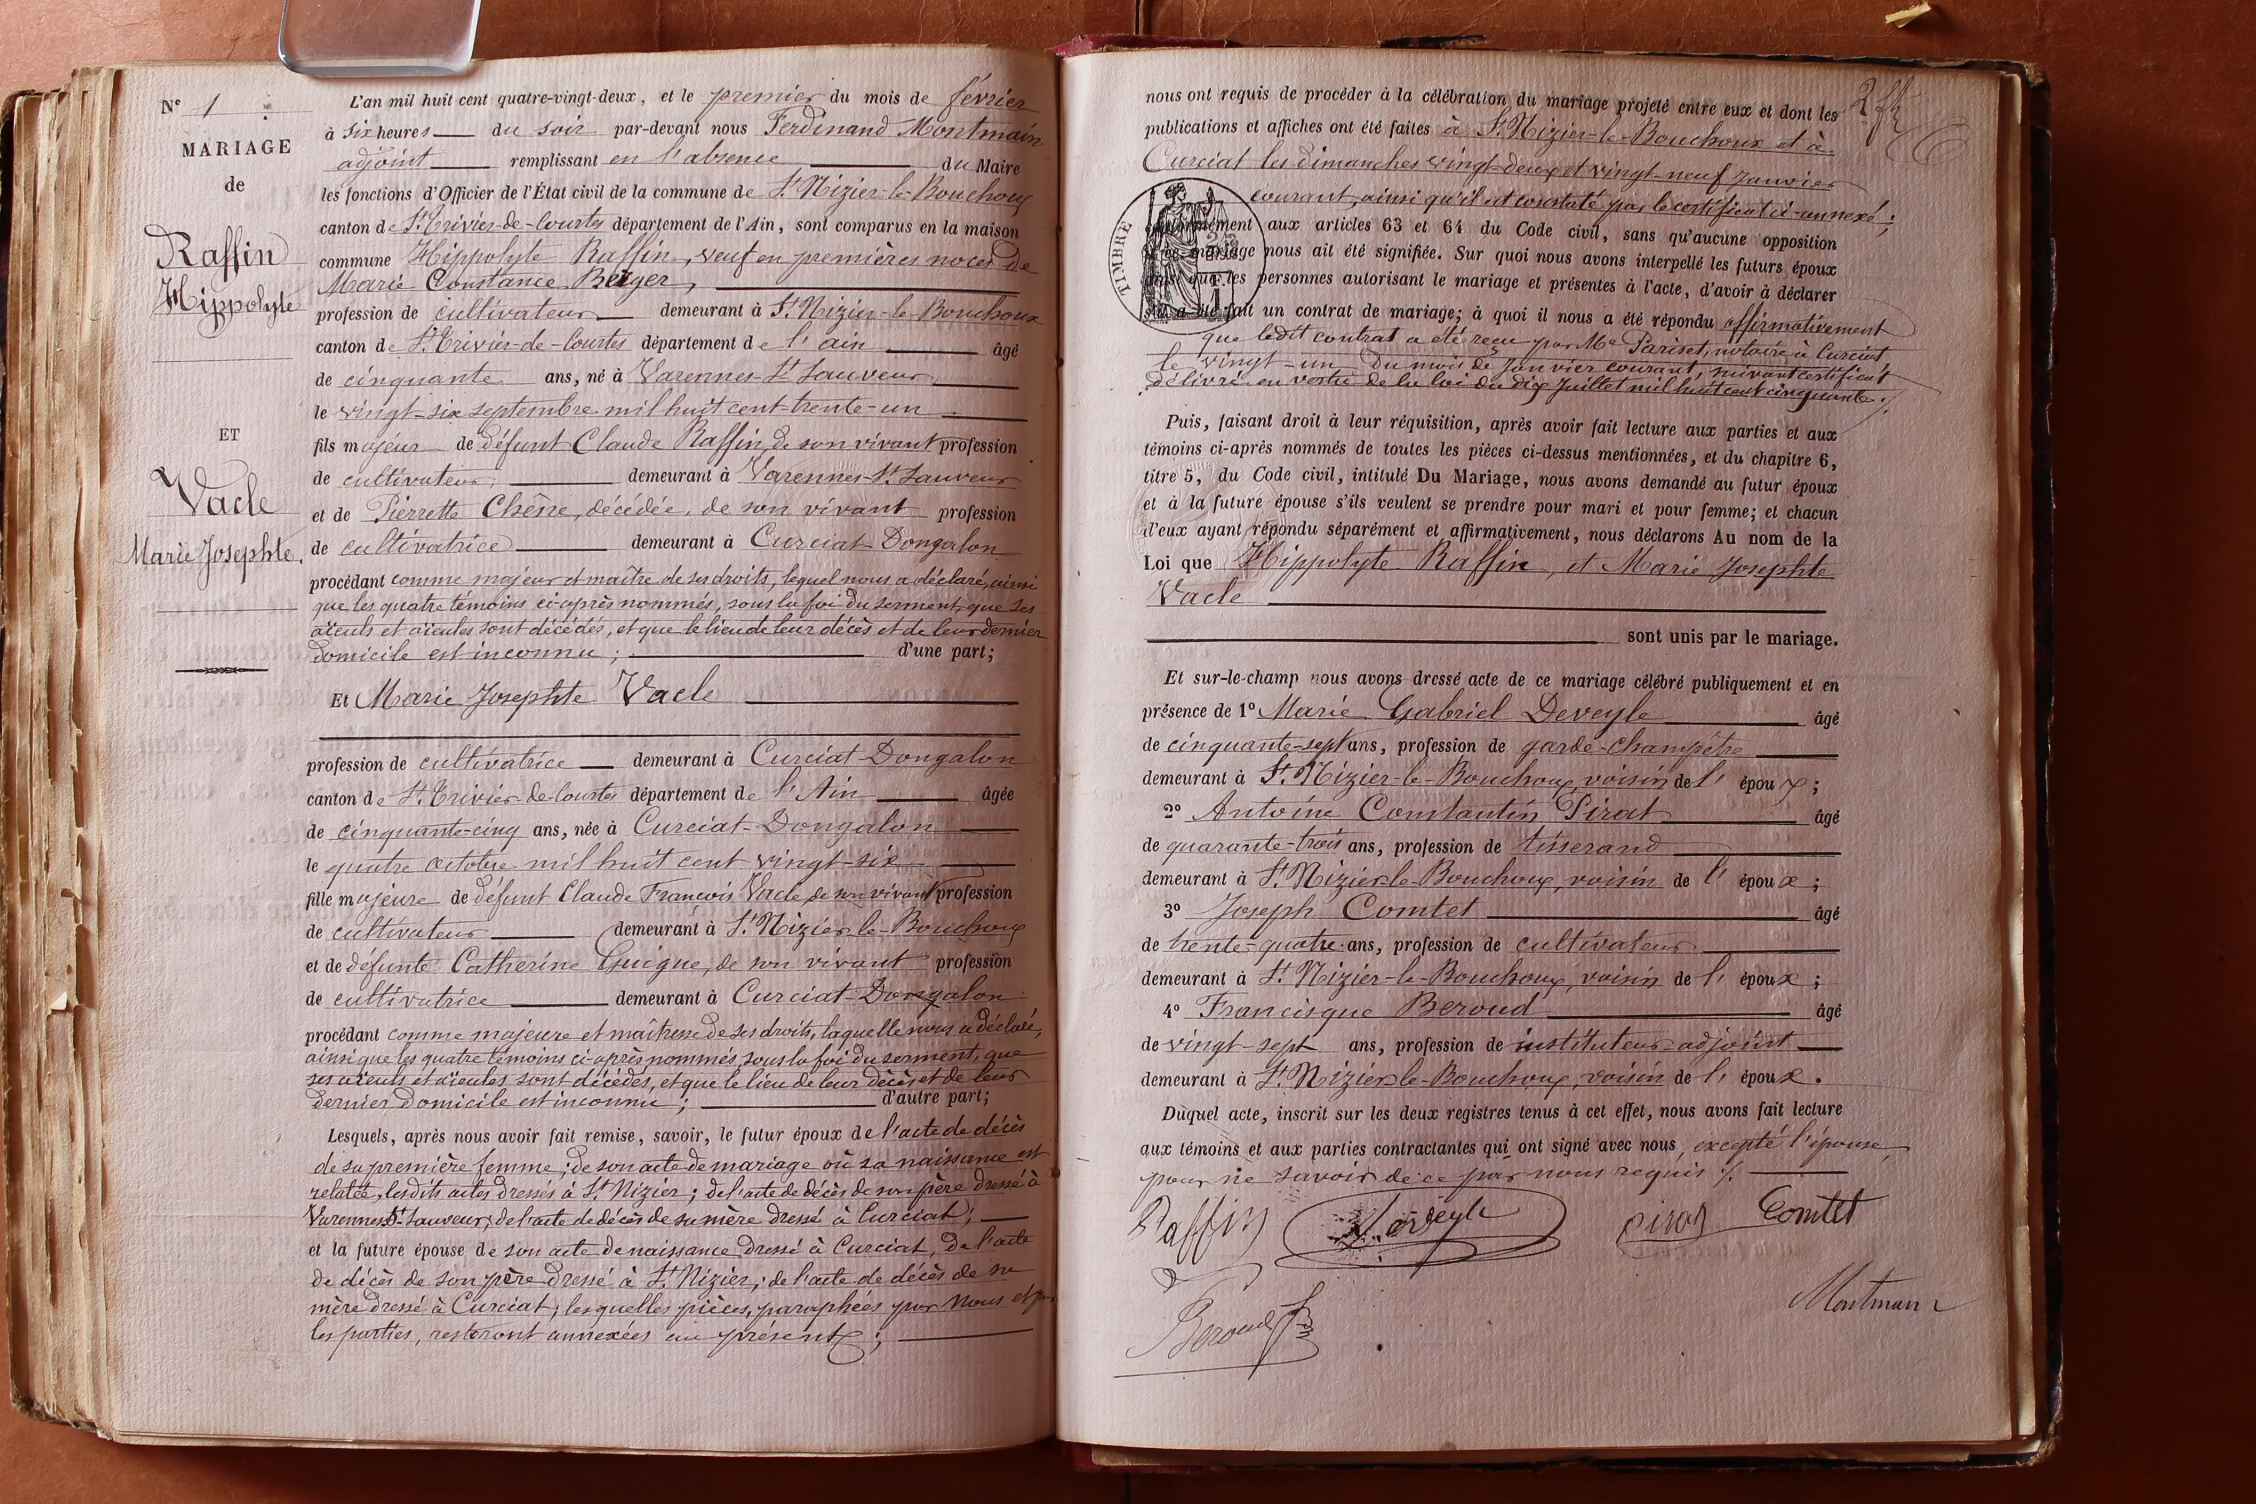 N° 1
MARIAGE
de
Raffin
Hippolyte
ET
Vacle
Marie Josephte.
L'an mil huit cent quatre-vingt-deux, et le premier du mois de février
à six heures du soir par-devant nous Ferdinand Montmain
adjoint remplissant en l'absence du Maire
les fonctions d'Officier de l'État civil de la commune de St Nizier-le-Bouchoux
canton de St Trivier-de-Courtes département de l'Ain, sont comparus en la maison
commune Hippolyte Raffin, veuf en premières noces de
Marie Constance Berger,
profession de cultivateur demeurant à St Nizier-le-Bouchoux
canton de St Trivier-de-Courtes département de l'ain âgé
de cinquante ans, né à Varennes-St Sauveur
le vingt-six septembre mil huit cent-trente-un
fils majeur de défunt Claude Raffin, de son vivant profession
de cultivateur, demeurant à Varennes-St Sauveur
et de Pierrette Chêne, décédée, de son vivant profession
de cultivatrice demeurant à Curciat-Dongalon
procédant comme majeur et maître de ses droits, lequel nous a déclaré, ainsi
que les quatre témoins ci-après nommés, sous la foi du serment, que ses
aïeuls et aïeules sont décédés, et que le lieu de leur décès et de leur dernier
domicile est inconnu; d'une part;
Et Marie Josephte Vacle
profession de cultivatrice demeurant à Curciat-Dongalon
canton de St Trivier-de-Courtes département de l'Ain âgée
de cinquante-cinq ans, née à Curciat-Dongalon
le quatre octobre mil huit cent vingt-six
fille majeure de défunt Claude François Vacle de son vivant profession
de cultivateur demeurant à St Nizier-le-Bouchoux
et de défunte Catherine Guigue, de son vivant profession
de cultivatrice demeurant à Curciat-Dongalon
procédant comme majeure et maîtresse de ses droits, laquelle nous a déclaré,
ainsi que les quatre témoins ci-après nommés, sous la foi du serment, que
ses aïeuls et aïeules sont décédés, et que le lieu de leur décès et de leur
dernier domicile est inconnu; d'autre part;
Lesquels, après nous avoir fait remise, savoir, le futur époux de l'acte de décès
de sa première femme; de son acte de mariage où sa naissance est
relatée, lesdits actes dressés à St Nizier; de l'acte de décès de son père dressé à
Varennes-St Sauveur; de l'acte de décès de sa mère dressé à Curciat;
et la future épouse de son acte de naissance dressé à Curciat, de l'acte
de décès de son père dressé à St Nizier; de l'acte de décès de sa
mère dressé à Curciat; lesquelles pièces, paraphées par nous et par
les parties, resteront annexées au présent;
nous ont requis de procéder à la célébration du mariage projeté entre eux et dont les
publications et affiches ont été faites à St Nizier-le-Bouchoux et à
Curciat les dimanches vingt-deux et vingt-neuf janvier
courant, ainsi qu'il est constaté par le certificat ci-annexé;
TIMBRE
conformément aux articles 63 et 64 du Code civil, sans qu'aucune opposition
à ce mariage nous ait été signifiée. Sur quoi nous avons interpellé les futurs époux
ainsi que les personnes autorisant le mariage et présentes à l'acte, d'avoir à déclarer
s'il a été fait un contrat de mariage; à quoi il nous a été répondu affirmativement
que ledit contrat a été reçu par Me Pariset, notaire à Curciat
le vingt-un du mois de janvier courant, suivant certificat
délivré en vertu de la loi du dix Juillet mil huit cent cinquante.
Puis, faisant droit à leur réquisition, après avoir fait lecture aux parties et aux
témoins ci-après nommés de toutes les pièces ci-dessus mentionnées, et du chapitre 6,
titre 5, du Code civil, intitulé Du Mariage, nous avons demandé au futur époux
et à la future épouse s'ils veulent se prendre pour mari et pour femme; et chacun
d'eux ayant répondu séparément et affirmativement, nous déclarons Au nom de la
Loi que Hippolyte Raffin, et Marie Josephte
Vacle
sont unis par le mariage.
Et sur-le-champ nous avons dressé acte de ce mariage célébré publiquement et en
présence de 1° Marie Gabriel Deveyle âgé
de cinquante-sept ans, profession de garde-champêtre
demeurant à St Nizier-le-Bouchoux, voisin de l'époux;
2° Antoine Constantin Pirat âgé
de quarante-trois ans, profession de tisserand
demeurant à St Nizier-le-Bouchoux, voisin de l'époux;
3° Joseph Comtet âgé
de trente-quatre ans, profession de cultivateur
demeurant à St Nizier-le-Bouchoux, voisin de l'époux;
4° Francisque Beroud âgé
de vingt-sept ans, profession de instituteur-adjoint
demeurant à St Nizier-le-Bouchoux, voisin de l'époux.
Duquel acte, inscrit sur les deux registres tenus à cet effet, nous avons fait lecture
aux témoins et aux parties contractantes qui ont signé avec nous, excepté l'épouse,
pour ne savoir de ce par nous requis ./.
Raffin Deveyle Pirat Comtet
Beroud Montmain